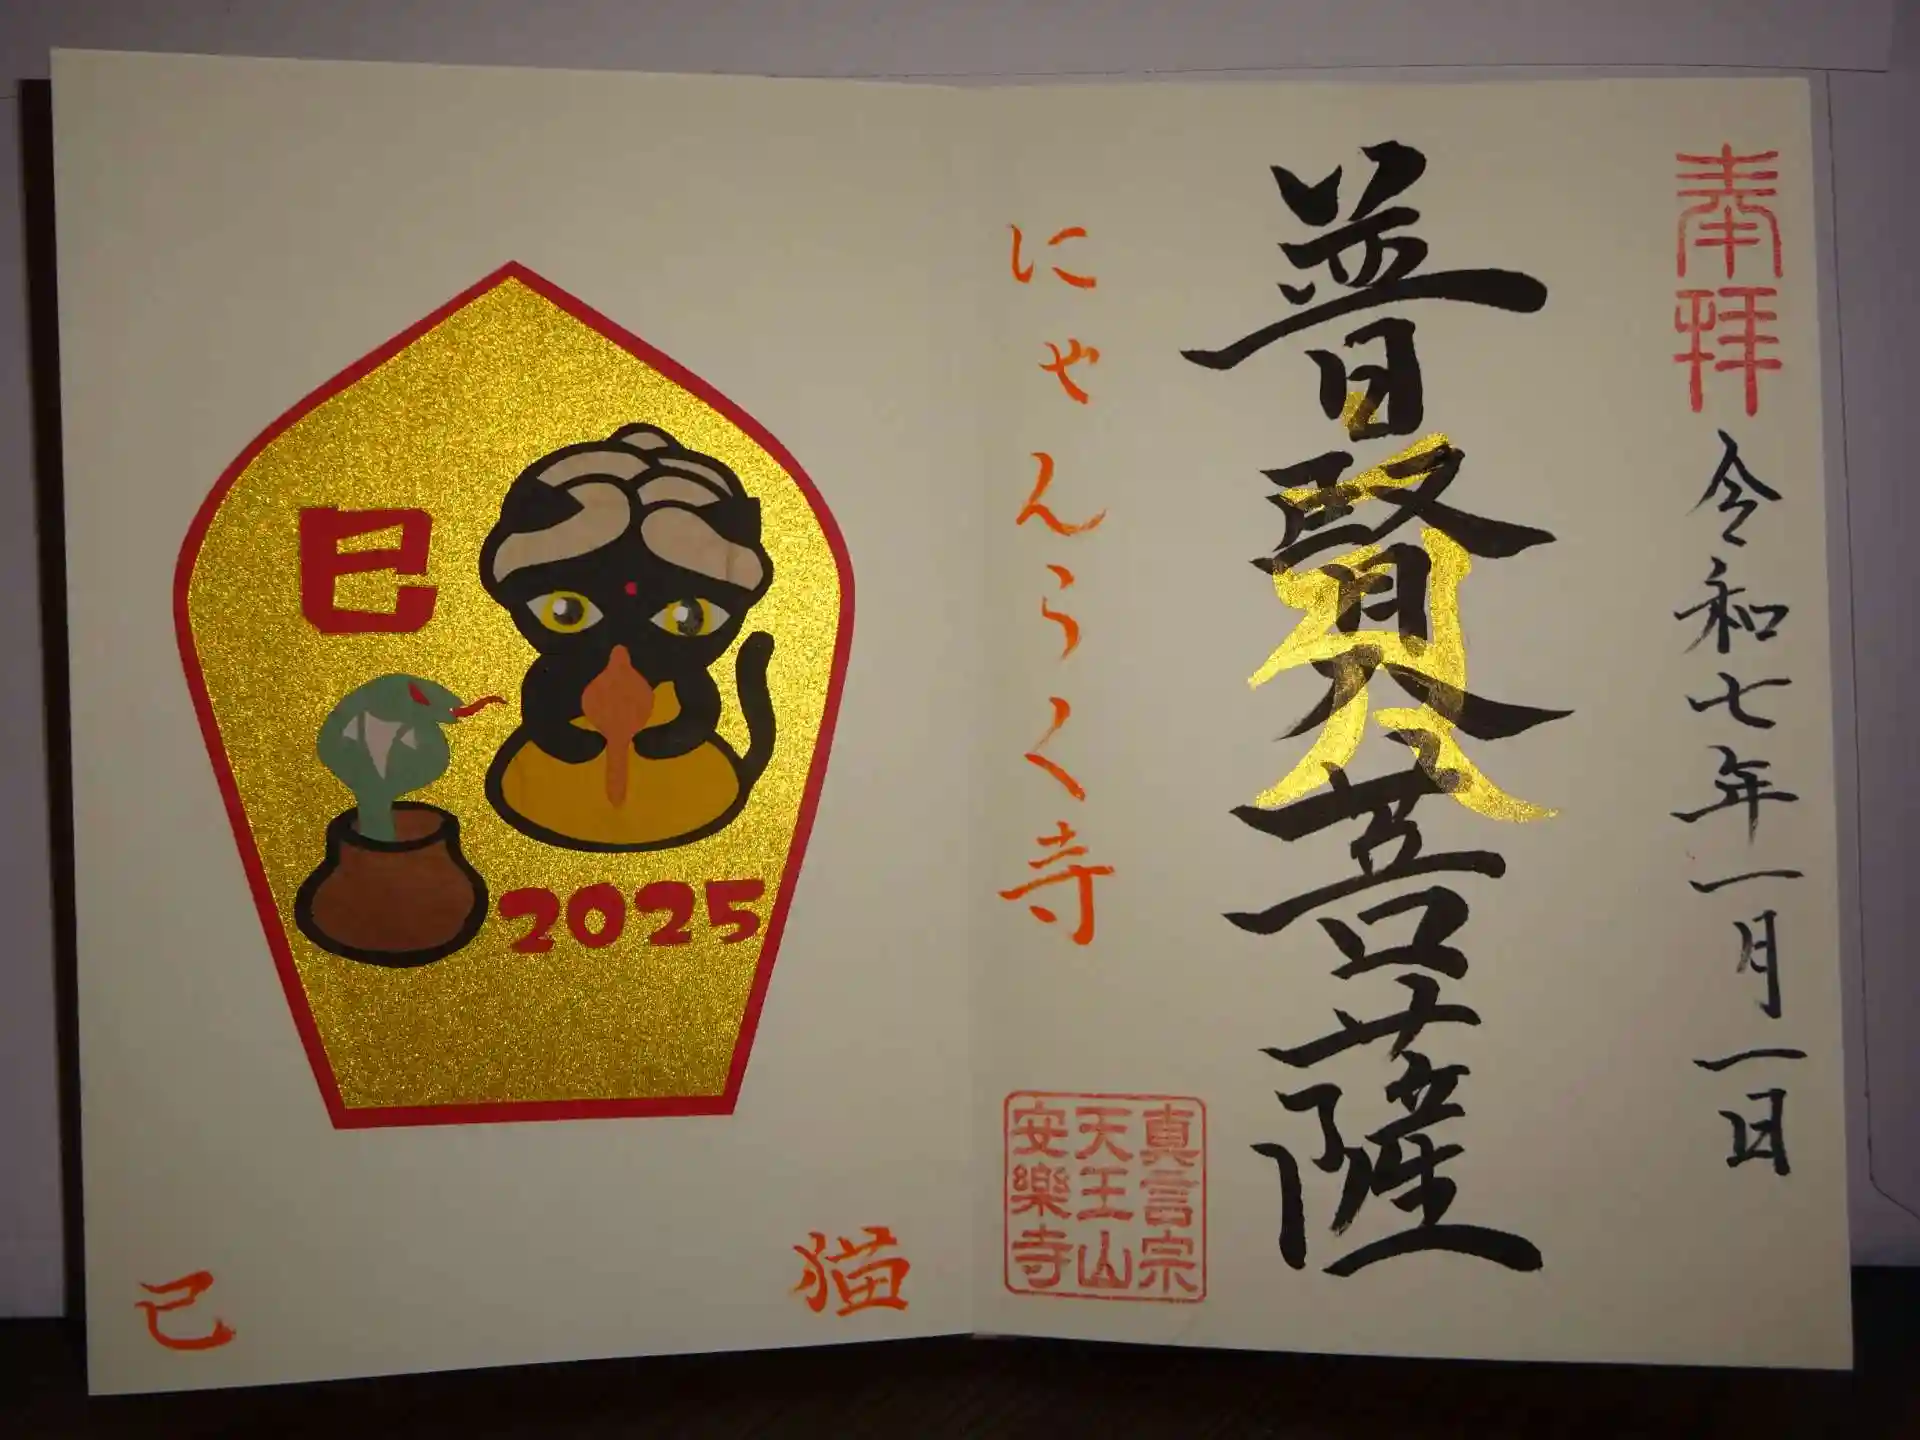 奉拝
令和七年一月一日
普賢大菩薩
にゃんらく寺
真言宗
天王山
安樂寺
巳
2025
猫
巳